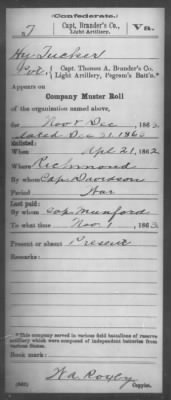 (Confederate.)
T Capt. Brander's Co., Va.
Light Artillery.
Hu Tucker
Pvt., Capt. Thomas A. Brander's Co.
Light Artillery, Pegram's Batt'n.*
Appears on
Company Muster Roll
of the organization named above,
for Nov & Dec, 1863.
dated Dec 31, 1863
Enlisted:
When April 21, 1862
Where Richmond
By whom Cap. Davidson
Period War
Last paid:
By whom Cap. Munford
To what time Nov 1, 1863
Present or absent Present
Remarks:
*This company served in various field battalions of reserve
artillery which were composed of independent batteries from
various States.
Book mark:
(642) Wa. Roxby
Copyist.